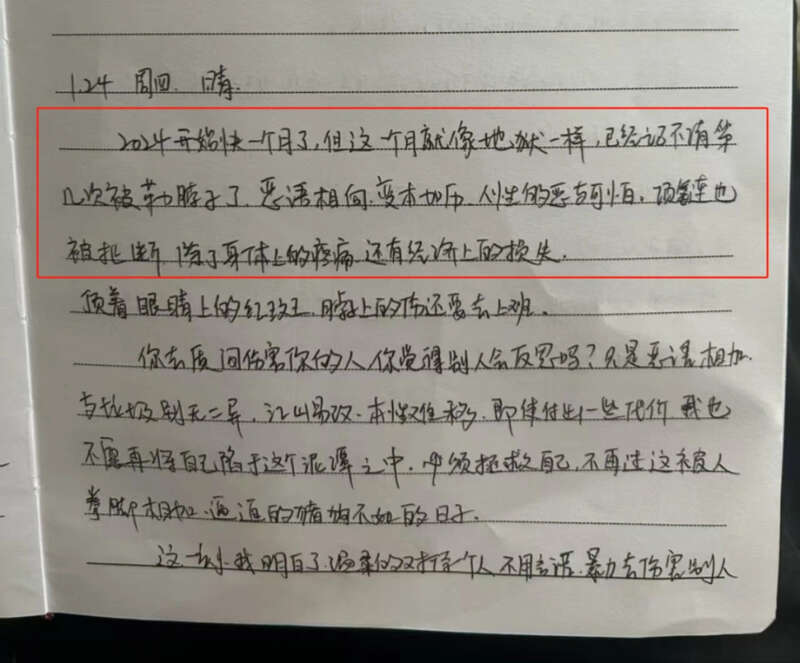 1.24 周四. 晴.
2024开始快一个月了,但这一个月就像地狱一样,已经记不清第
几次被勒脖子了.恶语相向.变本加厉.人性的恶与可怕.项链也
被扯断 除了身体上的疼痛 还有经济上的损失.
顶着眼睛上的红斑.脖子上的伤还要去上班.
你去质问伤害你的人 你觉得别人会反思吗?只是恶语相加.
与垃圾别无二异,江山易改.本性难移.即使付出一些代价 我也
不愿再将自己陷于这个泥潭之中,必须拯救自己,不再过这被人
拳脚相加.逼迫的猪狗不如的日子.
这一刻.我明白了 温柔的对待个人 不用言语.暴力去伤害别人